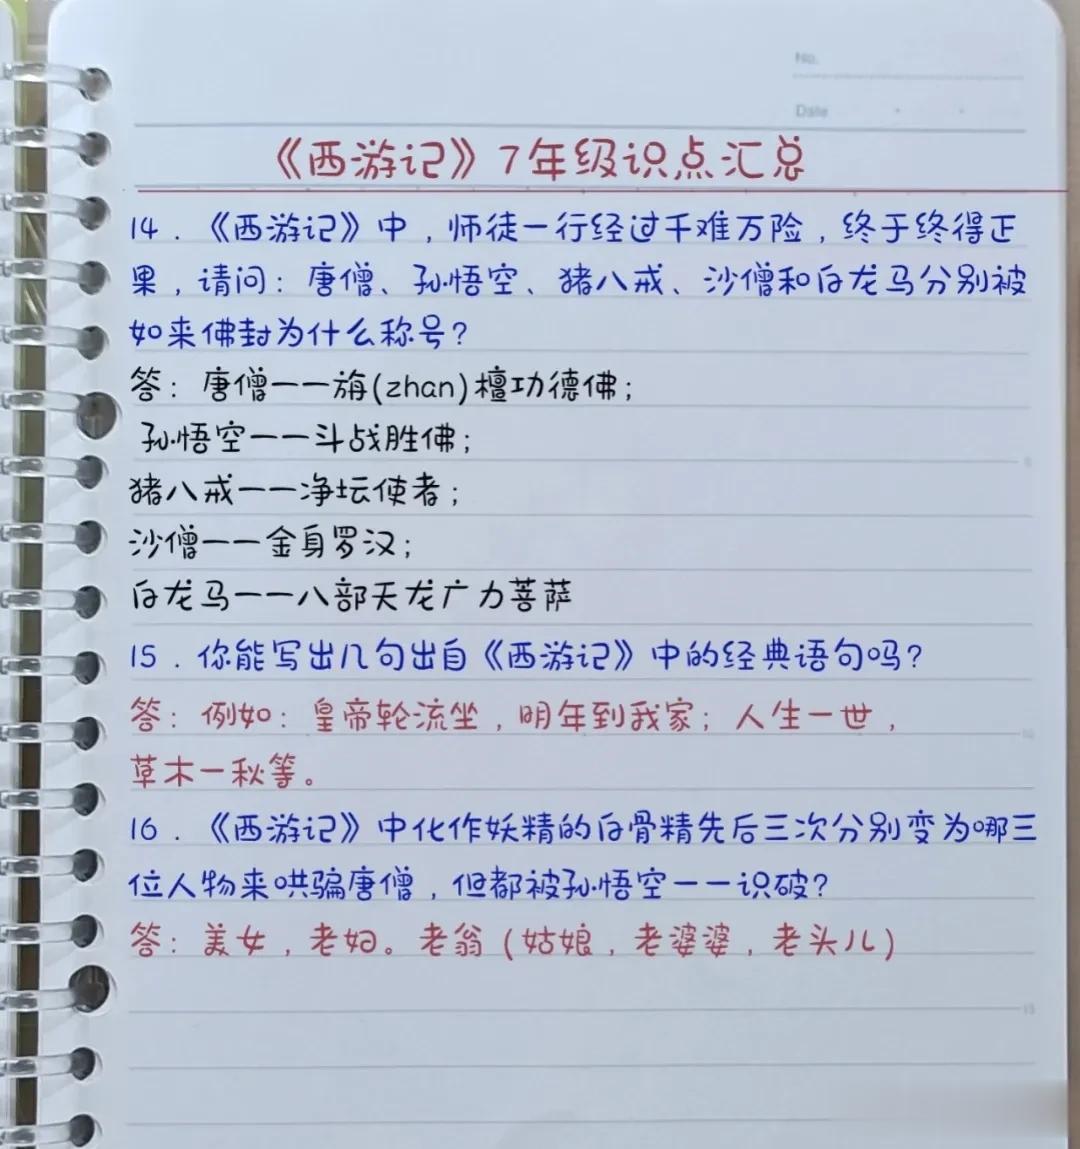 No.
Date
《西游记》7年级识点汇总
14.《西游记》中,师徒一行经过千难万险,终于终得正
果,请问:唐僧、孙悟空、猪八戒、沙僧和白龙马分别被
如来佛封为什么称号?
答:唐僧一一旃(zhan)檀功德佛;
孙悟空一一斗战胜佛;
猪八戒一一净坛使者;
沙僧一一金身罗汉;
白龙马一一八部天龙广力菩萨
15.你能写出几句出自《西游记》中的经典语句吗?
答:例如:皇帝轮流坐,明年到我家;人生一世,
草木一秋等。
16.《西游记》中化作妖精的白骨精先后三次分别变为哪三
位人物来哄骗唐僧,但都被孙悟空一一识破?
答:美女,老妇。老翁(姑娘,老婆婆,老头儿)